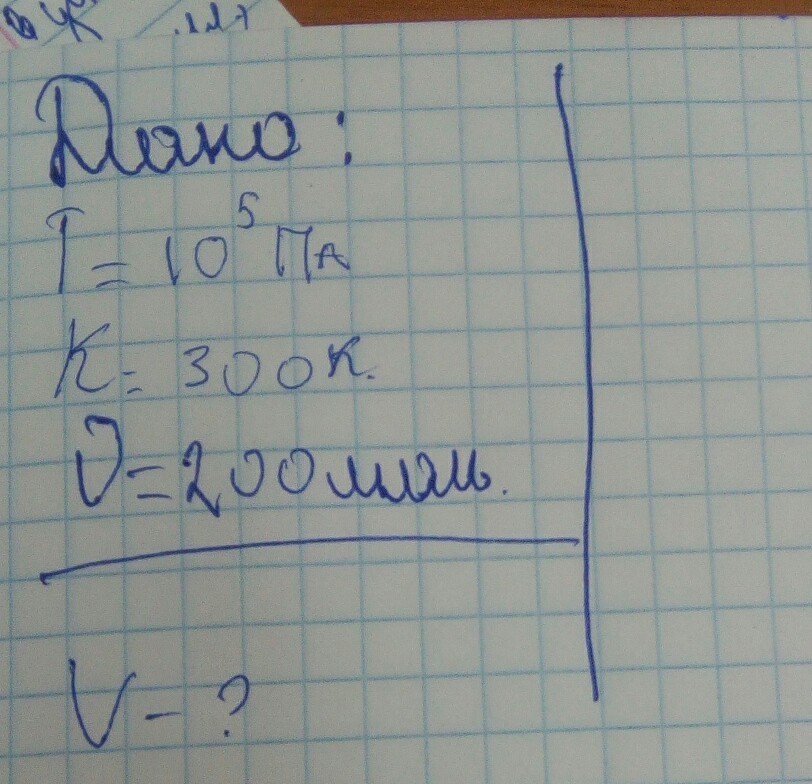 Дано:
T = 10⁵ Па
K = 300 К.
ν = 200 моль.
V - ?